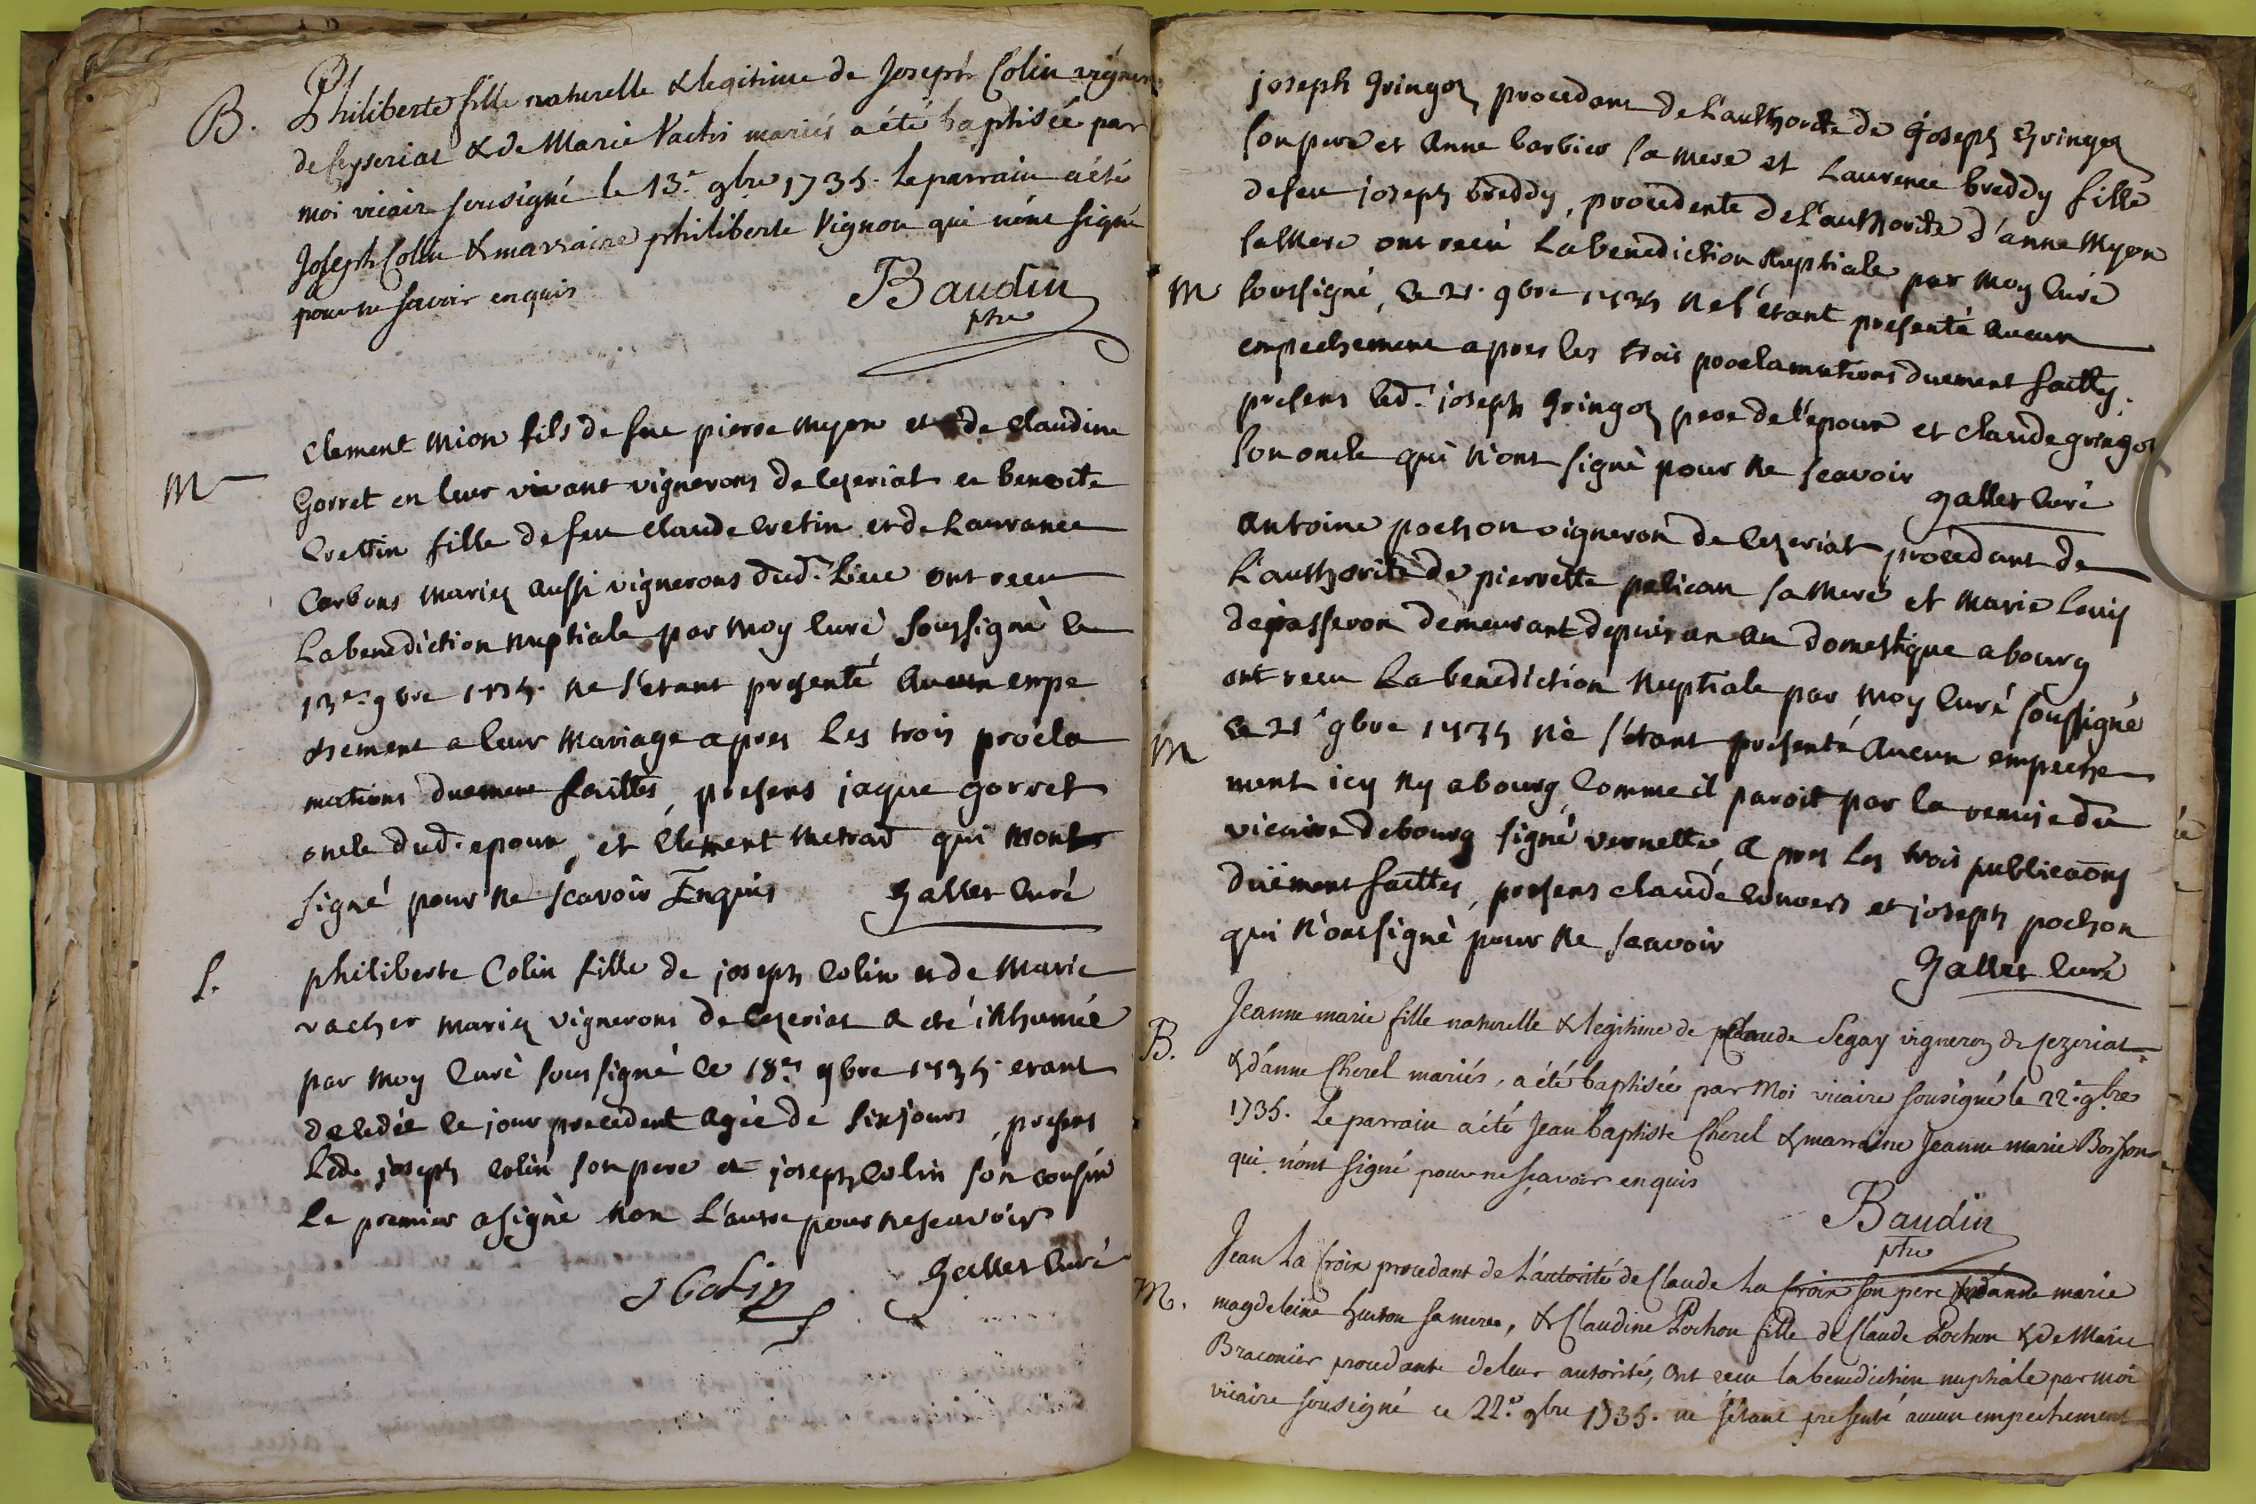 B. Philiberte fille naturelle & legitime de Joseph Colin vigneron
de seyseriat & de Marie Vachi mariés a été baptisée par
moi vicaire sousigné le 13.e 9bre 1735. Le parrain a été
Joseph Colin & marraine philiberte Vignon qui n'ont signé
pour ne savoir enquis
Baudin
ptre
Clement Mion fils de feu pierre myon et de Claudine
M Gorret en leur vivant vignerons de Cezeriat et benoite
Crettin fille de feu Claude Cretin et de Laurance
Carbons mariez aussi vignerons dud. Lieu ont recu
La benediction nuptiale par moy Curé soussigné le
13e 9bre 1735. ne s'etant presenté aucun empe
chement a leur mariage apres les trois procla
mations duement faittes, presens jaque gorret
oncle dud. epoux, et Clement metrad qui n'ont
signé pour ne scavoir Enquis Gallet Curé
S. philiberte Colin fille de joseph Colin et de Marie
vacher mariez vignerons de Cezeriat a eté inhumée
par moy Curé soussigné le 18e 9bre 1735 etant
decedée le jour precedent agée de six jours, presens
Led. joseph Colin son pere et joseph Colin son cousin
le premier a signé non l'autre pour ne scavoir
J Colin Gallet Curé
joseph Gringoz procedant de L'authorité de joseph Gringoz
son pere et Anne barbier sa mere et Laurence breddy fille
de feu joseph breddy, procedente de L'authorité d'anne Myon
sa Mere ont recu La benediction Nuptiale par moy Curé
M soussigné, le 21. 9bre 1735 ne s'etant presenté aucun
empechement apres les trois proclamations duement faittes.
presens led. joseph Gringoz pere de l'epoux et Claude gringoz
son oncle qui n'ont signé pour ne scavoir
Gallet Curé
Antoine pochon vigneron de Cezeriat procedant de
L'authorité de pierrette pelican sa Mere et Marie Louis
de journans demeurant depuis un an domestique a bourg
ont recu La benediction Nuptiale par moy Curé soussigné
M le 21e 9bre 1735 ne s'etant presenté aucun empeche
ment icy ny a bourg, Comme il paroit par la remise du
vicaire de bourg signé vernette, a pres les trois publicaons
düement faittes, presens claude Convers et joseph pochon
qui n'ont signé pour ne scavoir
Gallet Curé
B. Jeanne marie fille naturelle & legitime de Claude Segay vigneron de cezeriat
& d'anne Cherel mariés, a été baptisée par Moi vicaire sousigné le 22.e 9bre
1735. Le parrain a été Jean baptiste Cherel & marraine Jeanne marie Boisson
qui n'ont signé pour ne sçavoir enquis
Baudin
ptre
Jean La Croix procedant de L'autorité de Claude La Croix son pere & d'anne marie
M. magdeleine huton sa mere, & Claudine Pochon fille de Claude Pochon & de Marie
Braconier procedante de leur autorité, ont recu la benediction nuptiale par moi
vicaire sousigné ce 22.e 9bre 1735. ne s'étant presenté aucun empechement